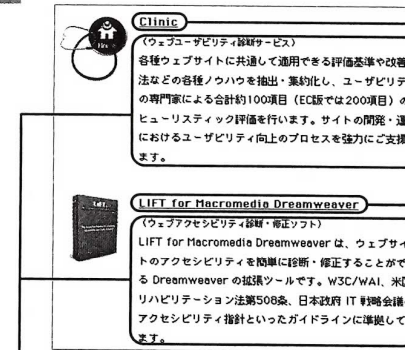 Clinic
(ウェブユーザビリティ診断サービス)
各種ウェブサイトに共通して適用できる評価基準や改善
法などの各種ノウハウを抽出・集約化し、ユーザビリテ
の専門家による合計約100項目（EC版では200項目）の
ヒューリスティック評価を行います。サイトの開発・運
におけるユーザビリティ向上のプロセスを強力にご支援
ます。
LIFT for Macromedia Dreamweaver
(ウェブアクセシビリティ診断・修正ソフト)
LIFT for Macromedia Dreamweaver は、ウェブサイ
トのアクセシビリティを簡単に診断・修正することがで
る Dreamweaver の拡張ツールです。W3C/WAI、米国
リハビリテーション法第508条、日本政府 IT 戦略会議
アクセシビリティ指針といったガイドラインに準拠して
ます。